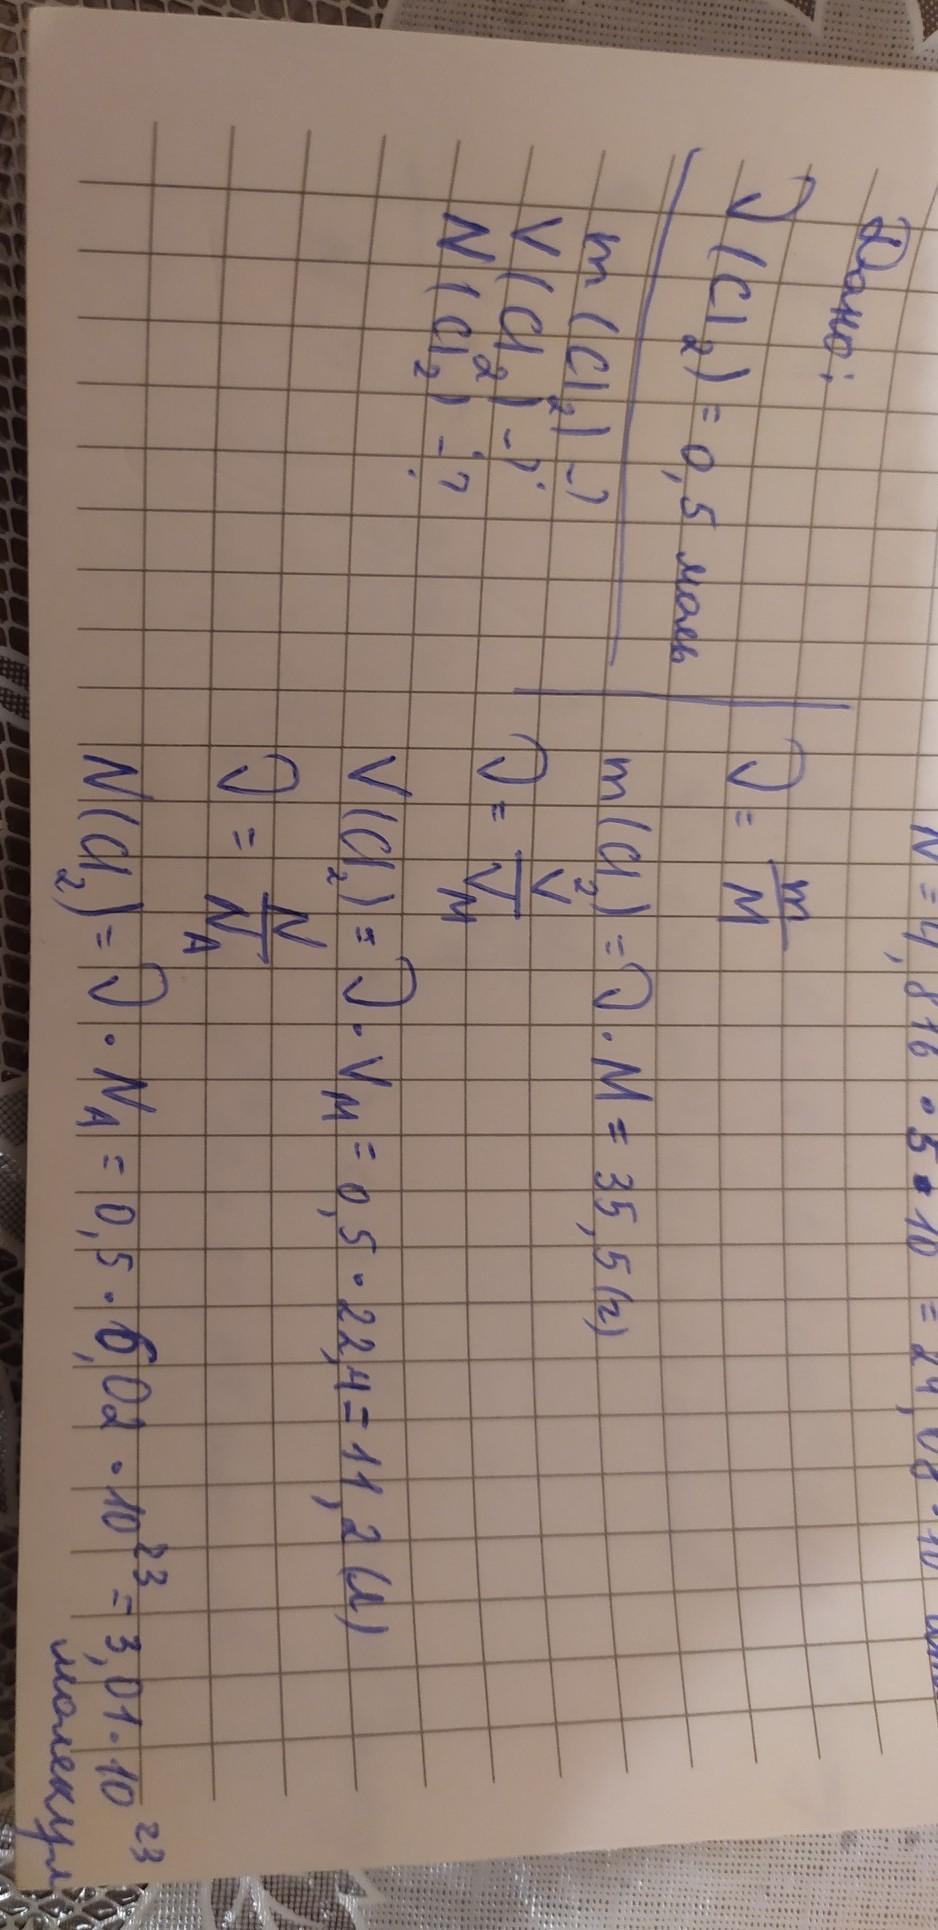 N = 4,816 · 5 · 10 = 24,08 · 10
Дано:
ν (Cl₂) = 0,5 моль
m (Cl₂) - ?
V (Cl₂) - ?
N (Cl₂) - ?
ν = m/M
m (Cl₂) = ν · M = 35,5 (г)
ν = V/Vм
V (Cl₂) = ν · Vм = 0,5 · 22,4 = 11,2 (л)
ν = N/NA
N (Cl₂) = ν · NA = 0,5 · 6,02 · 10²³ = 3,01 · 10²³
молекул